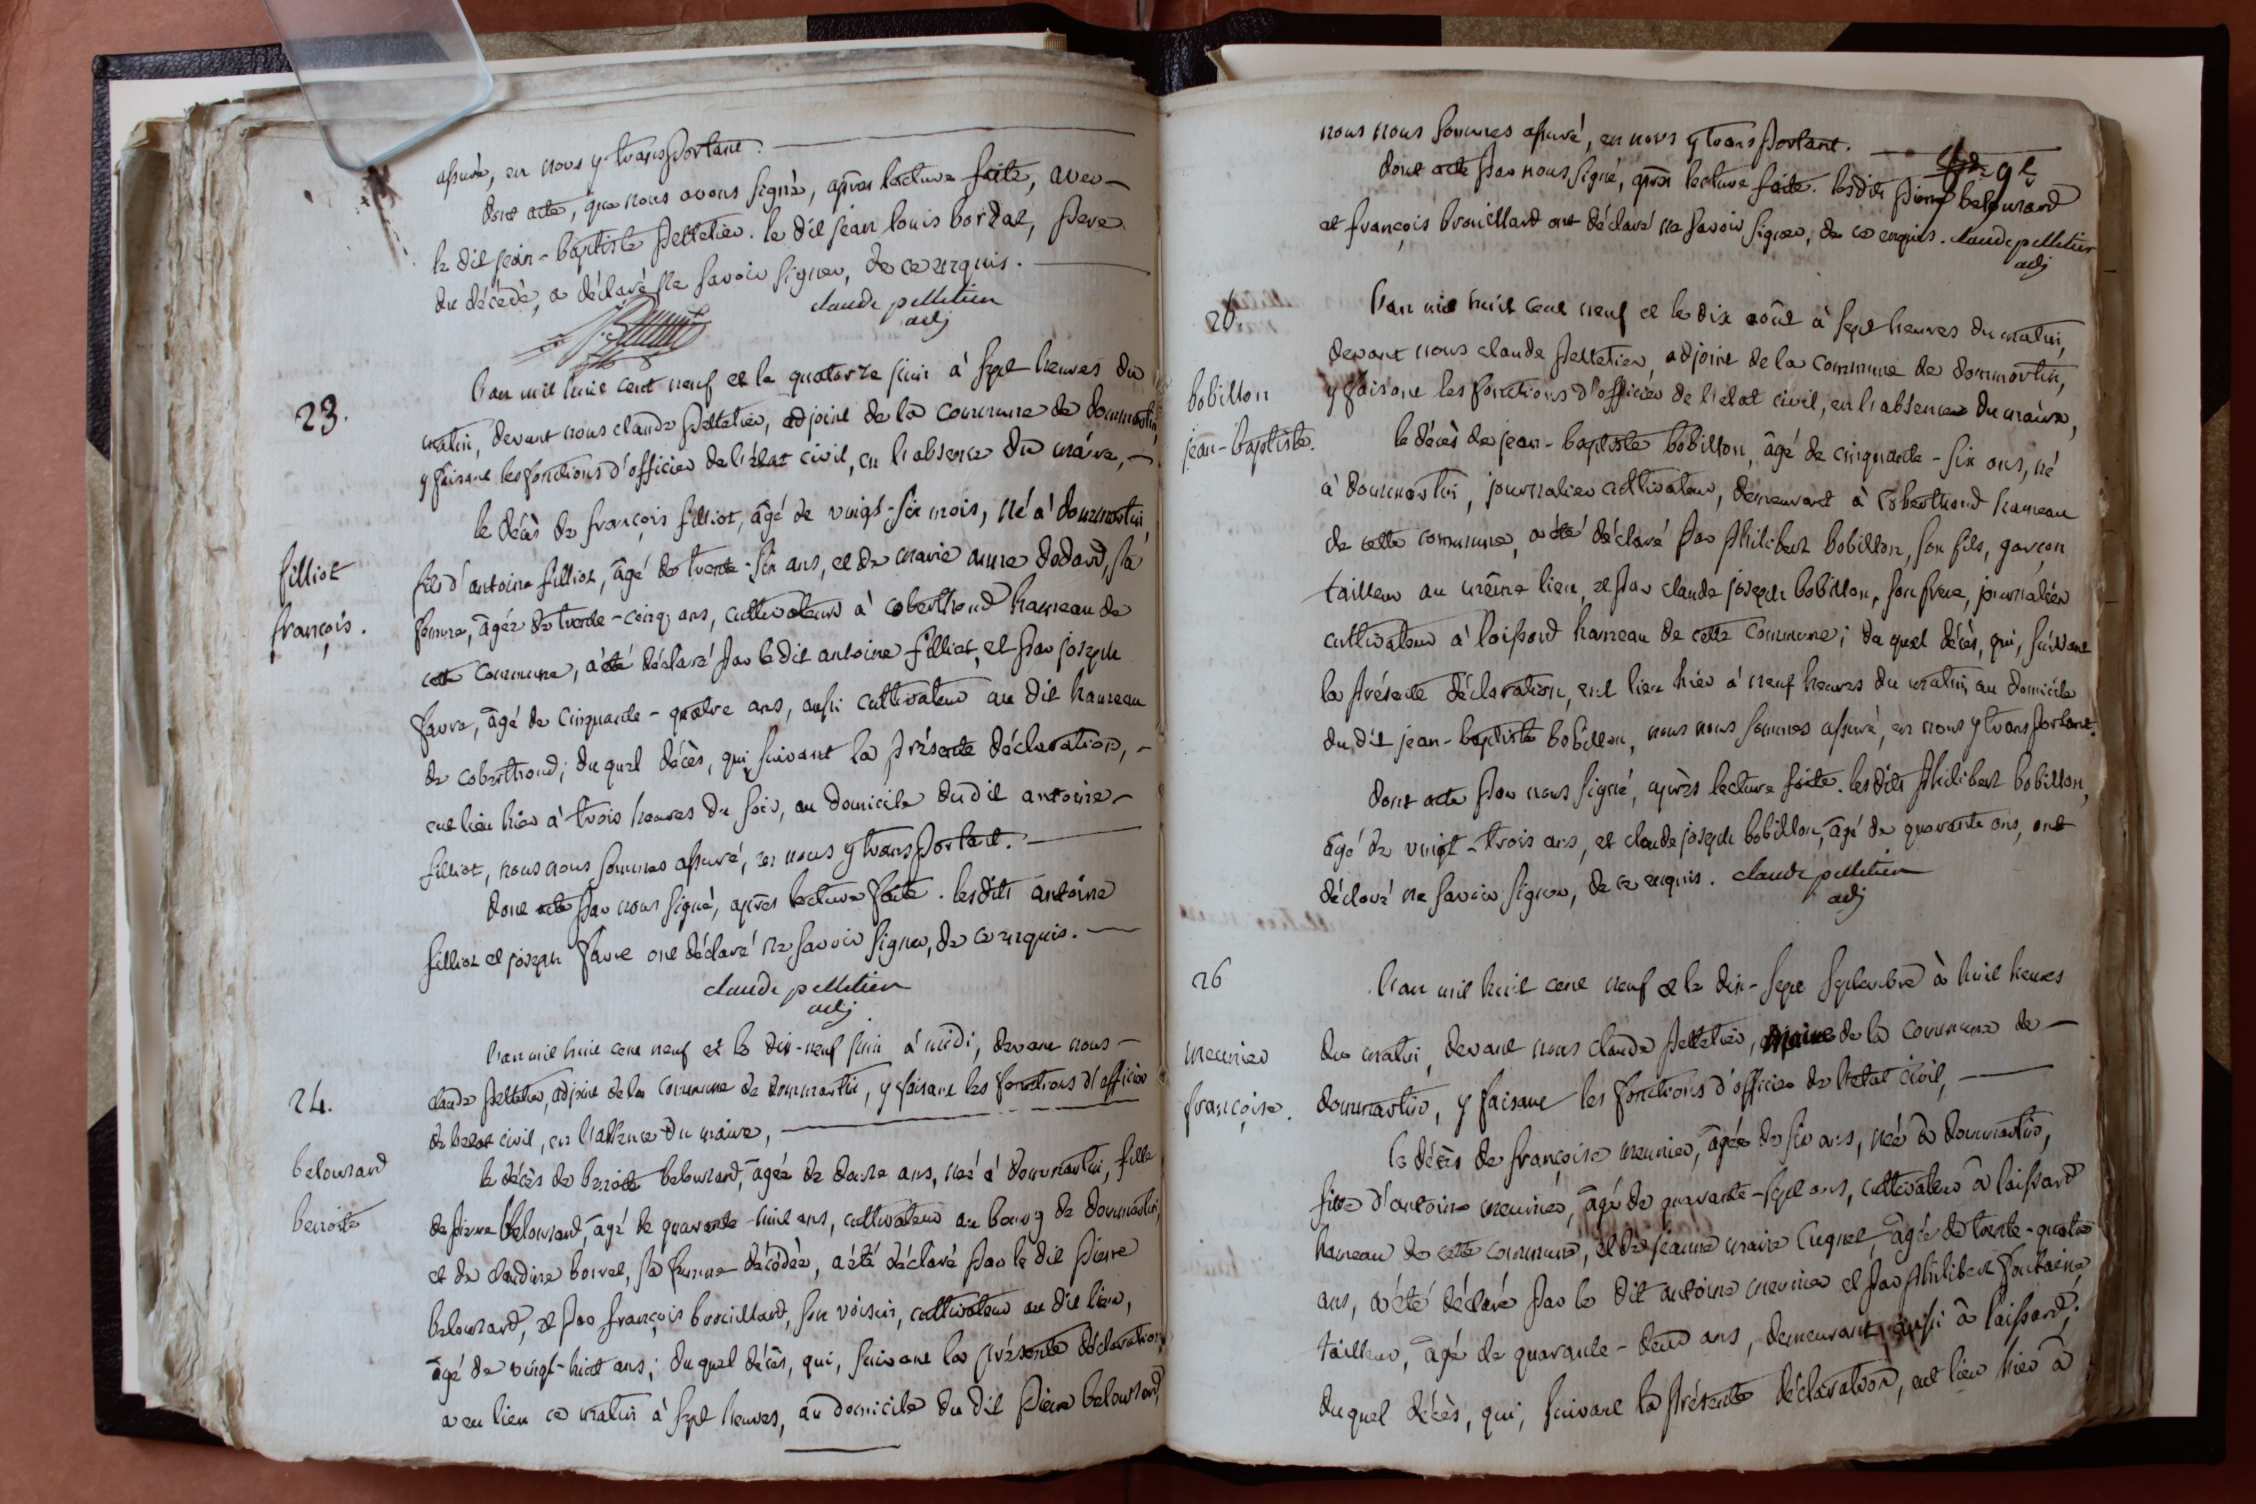 assuré, en nous y transportant.
dont acte, que nous avons signé, après lecture faite, avec
le dit jean-baptiste pelletier. le dit jean louis bordat, pere
du décédé, a déclaré ne savoir signer, de ce enquis.
claude pelletier
adj
23.
l'an mil huit cent neuf et le quatorze juin à sept heures du
matin, devant nous claude pelletier, adjoint de la commune de dommartin,
y faisant les fonctions d'officier de l'état civil, en l'absence du maire,
filliot
françois.
le décès de françois filliot, âgé de vingt-six mois, né à dommartin
fils d'antoine filliot, âgé de trente-six ans, et de marie anne dodard, sa
femme, âgée de trente-cinq ans, cultivateurs à coberthoud hameau de
cette commune, a été déclaré par le dit antoine filliot, et par joseph
favre, âgé de cinquante-quatre ans, aussi cultivateur au dit hameau
de coberthoud; du quel décès, qui, suivant la présente déclaration,
eut lieu hier à trois heures du soir, au domicile du dit antoine
filliot, nous nous sommes assuré, en nous y transportant.
dont acte par nous signé, après lecture faite. les dits antoine
filliot et joseph favre ont déclaré ne savoir signer, de ce enquis.
claude pelletier
adj.
24.
l'an mil huit cent neuf et le dix-neuf juin à midi, devant nous
claude pelletier, adjoint de la commune de dommartin, y faisant les fonctions d'officier
de l'etat civil, en l'absence du maire,
belouzard
benoite
le décès de benoite belouzard, âgée de douze ans, née à dommartin, fille
de pierre belouzard, âgé de quarante-huit ans, cultivateur au bourg de dommartin,
et de claudine borvel, sa femme décédée, a été déclaré par le dit pierre
belouzard, et par françois brouillard, son voisin, cultivateur au dit lieu,
âgé de vingt-huit ans; du quel décès, qui, suivant la présente déclaration,
a eu lieu ce matin à sept heures, au domicile du dit pierre belouzard,
nous nous sommes assuré, en nous y transportant.
dont acte par nous signé, après lecture faite. les dits pierre belouzard
et françois brouillard ont déclaré ne savoir signer, de ce enquis. claude pelletier
adj
l'an mil huit cent neuf et le dix août à sept heures du matin,
devant nous claude pelletier, adjoint de la commune de dommartin,
y faisant les fonctions d'officier de l'etat civil, en l'absence du maire,
bobillon
jean-baptiste.
le décès de jean-baptiste bobillon, âgé de cinquante-six ans, né
à dommartin, journalier cultivateur, demeurant à coberthoud hameau
de cette commune, a été déclaré par philibert bobillon, son fils, garçon
tailleur au même lieu, et par claude joseph bobillon, son frere, journalier
cultivateur à loissard hameau de cette commune; du quel décès, qui, suivant
la présente déclaration, eut lieu hier à neuf heures du matin, au domicile
du dit jean-baptiste bobillon, nous nous sommes assuré, en nous y transportant.
dont acte par nous signé, après lecture faite. les dits philibert bobillon,
âgé de vingt-trois ans, et claude joseph bobillon, âgé de quarante ans, ont
déclaré ne savoir signer, de ce enquis. claude pelletier
adj
26
l'an mil huit cent neuf et le dix-sept septembre à huit heures
du matin, devant nous claude pelletier, maire de la commune de
dommartin, y faisant les fonctions d'officier de l'etat civil,
meunier
françoise.
le décès de françoise meunier, âgée de six ans, née à dommartin,
fille d'antoine meunier, âgé de quarante-sept ans, cultivateur à laissard
hameau de cette commune, et de jeanne marie Cuqnet, âgée de trente-quatre
ans, a été déclaré par le dit antoine meunier et par philibert fontaine
tailleur, âgé de quarante-deux ans, demeurant aussi à laissard;
du quel décès, qui, suivant la présente déclaration, eut lieu hier à